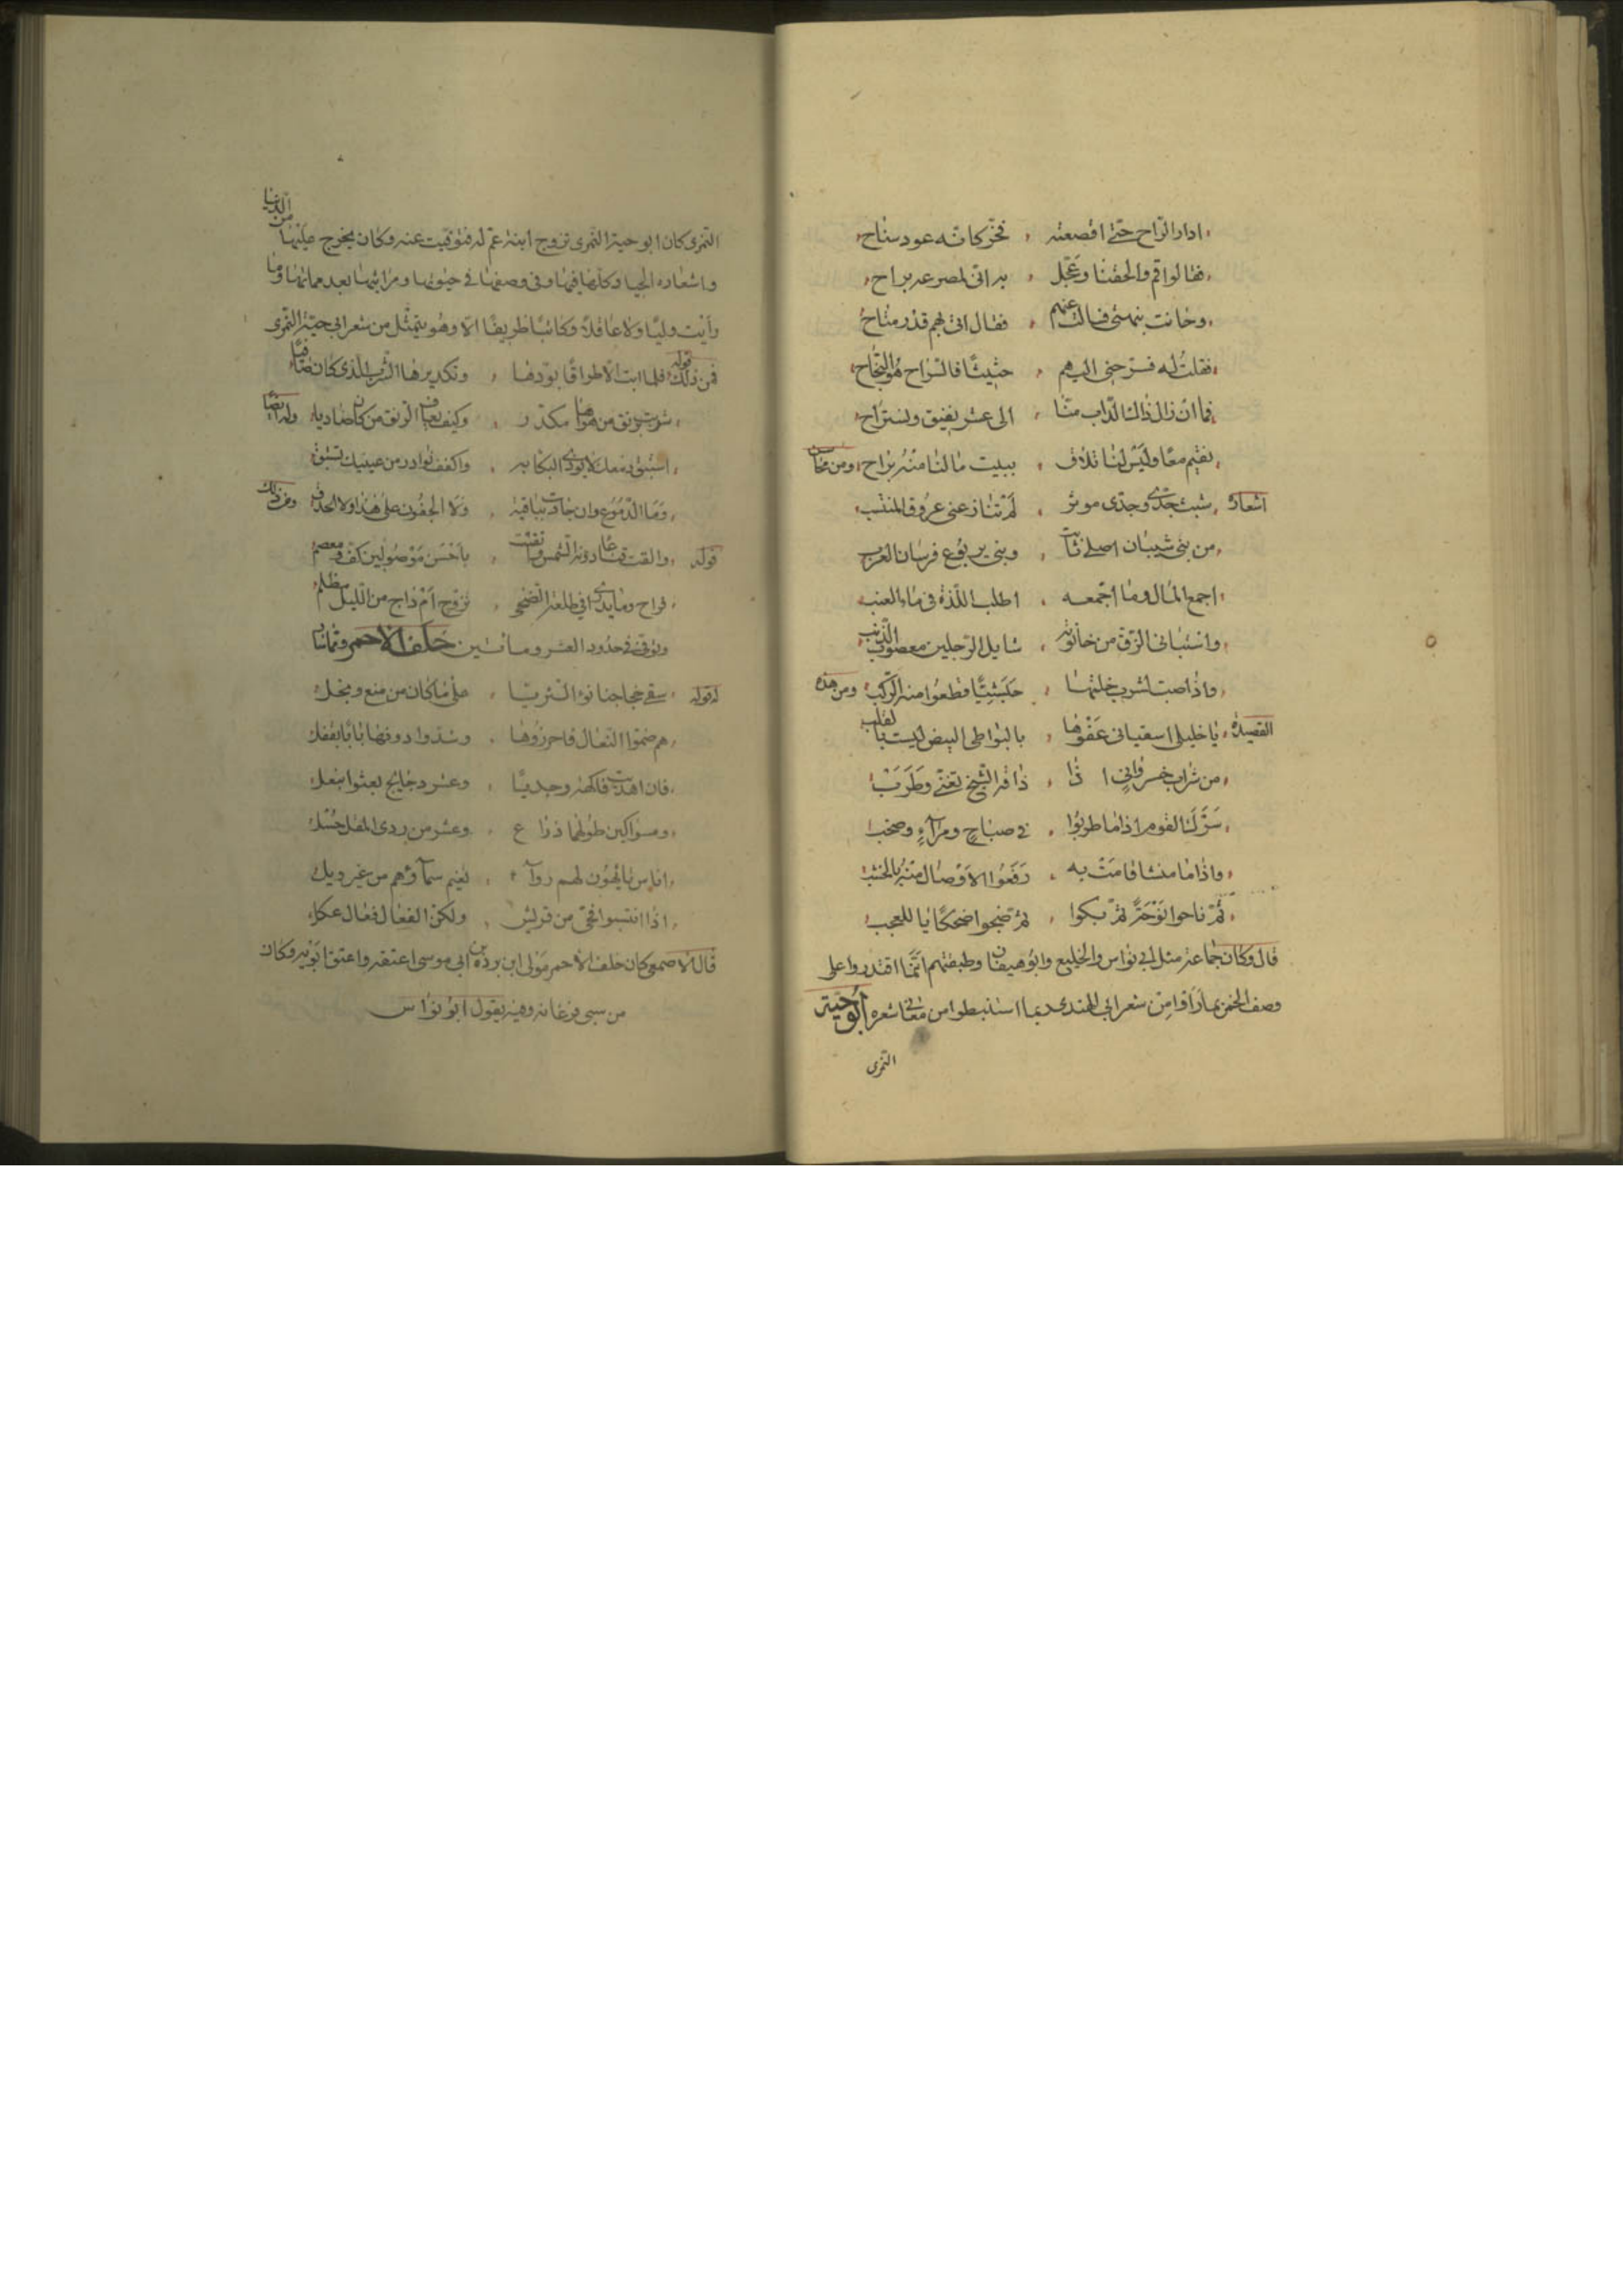 ادار الراح حتى اقصعته فخر كانه عود سناح
فقالوا قم والحقنا وعجل به انى لمصرعه براح
وحانت فسالت عنهم فقال اتى لهم قدر متاح
فقلت له فسرحنى اليهم حثيثا فالسراح هو النجاح
فما ان زال ذاك الداب منا الى عشر نفيق ونستراح
نقيم معا وليس لنا تلاق ببيت ما لنا منه براح ومن
اشعاره شبث جدى وجدى موثر لم تنازعنى عروق المنتسب
من بنى شيبان اصلى ثابت وبنى يربوع فرسان العرب
اجمع المال وما اجمعه اطلب اللذة فى ماء العنب
واستبانى الزق من حانوته شايل الرجلين معصوب الذنب
واذا صبت لشرب خلتها حبشيا قطعوا منه الركب ومن هذه
القصيدة يا خليلى اسقيانى عفوها بالبواطى البيض ليست بالقلب
من شراب خسروانى اذا ذاقه الشيخ تغنى وطرب
القوم اذا ما طربوا فى صباح ومراء وصخب
واذا ما منشا قامت به رفعوا الاوصال منه بالخشب
ثم ناحوا نوحة ثم بكوا ثم ضجوا ضحكا يا للعجب
قال وكان جماعة مثل ابى نواس والخليع وابو هيفان وطبقتهم انما اقتدروا على
وصف الخمر بما راوا من شعر ابى الهندى بما استنبطوا من معانى شعره ابو حية
النمرى
النمرى كان ابو حية النمرى تزوج ابنة عم له فتوقيت عنه وكان يخرج من الدنيا
واشعاره الجياد كلها فيها وفى وصفها فى حيوتها ومراثيها بعد مماتها وما
رأيت وليا ولا عاقلا وكاتبا ظريفا الا وهو يتمثل من شعر ابى حية النمرى
فمن ذلك قوله فلما ابت الا اطراقا بودها وتكديرها الشرب الذى كان صافيا
شربت برنق من هواها مكدر وكيف يعاف الرنق من كان صاديا وله ايضا
استبق دمعك لا يودى البكا به واكفف بوادر من عينيك تستبق
وما الدموع وان جادت بباقية ولا الجفون على هذا ولا الحدق ومن ذلك
قوله والقت قناعا دونه الشمس واتقت باحسن موصولين كف ومعصم
فراح وما يدرى افى طلعة الضحى تروح ام داج من الليل مظلم
وتوفى فى حدود العشر ومائتين خلف الاحمر وثمانين
له قوله سقى حجاجنا نوء الثريا على ما كان من منع وبخل
هم ضموا النعال فاحرزوها وشدوا دونها بابا بقفل
فان اهديت فاكهة وجديا وعشر دجايج بعثوا بنعل
ومسواكين طولهما ذراع وعشر من ردى المقل خشل
اناس تايهون لهم رواء تغيم سماؤهم من غير وبل
اذا انتسبوا ففى من قريش ولكن الفعال فعال عكل
قال الاصمعى كان خلف الاحمر مولى ابى بردة بن ابى موسى اعتقه واعتق ابويه وكان
من سبى فرغانة وفيه يقول ابو نواس